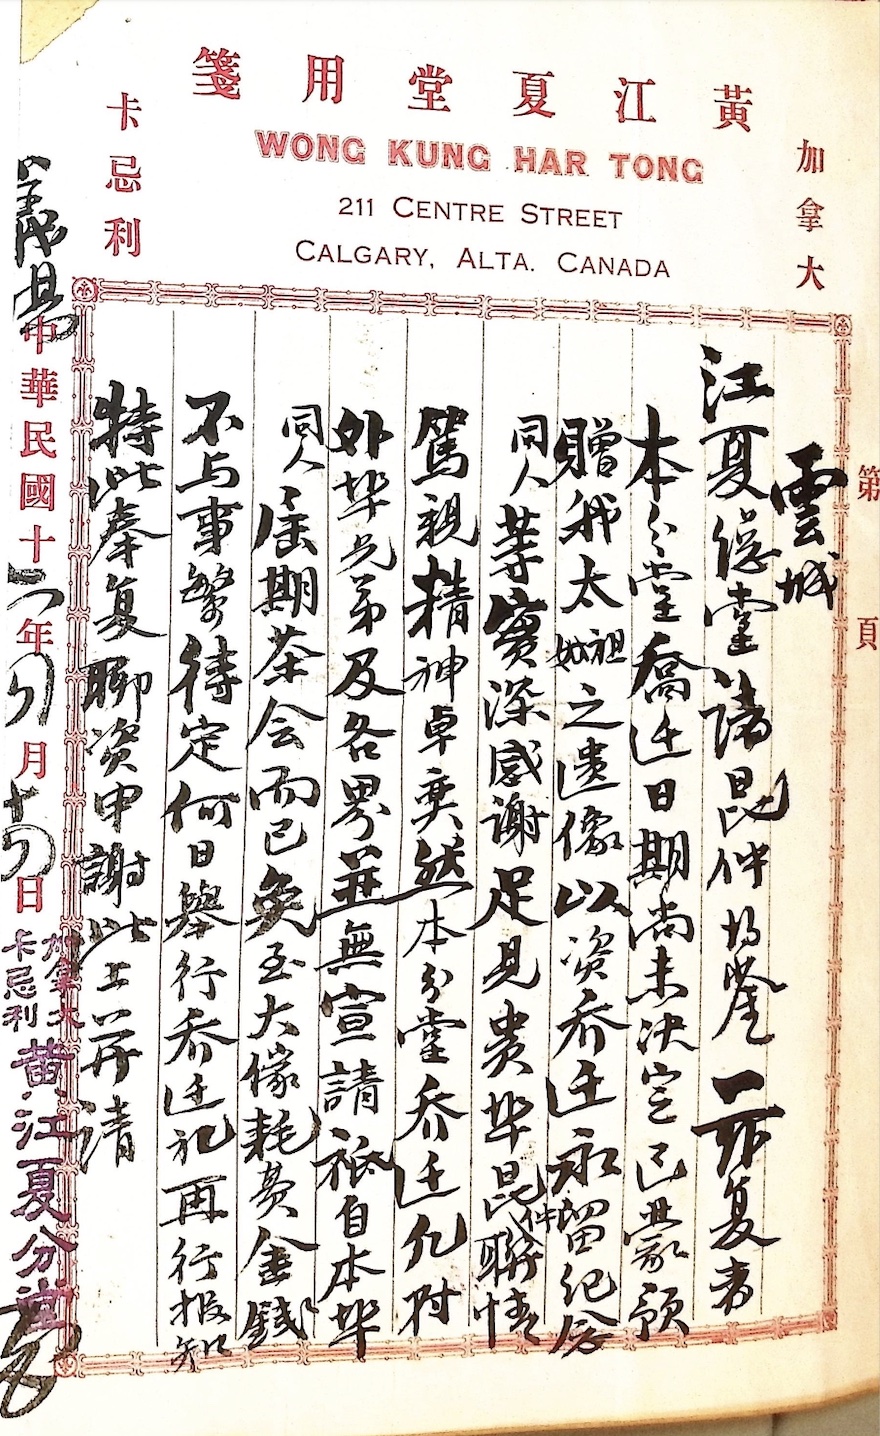 黃江夏堂用箋
加拿大
卡忌利
WONG KUNG HAR TONG
211 CENTRE STREET
CALGARY, ALTA. CANADA
第 頁
雲城
江夏總堂諸昆仲均鑒 敬复者
本分堂喬迁日期尚未决定已蒙預
贈我太祖妣之遺像以资乔迁永留纪念
同人等實深感謝足見贵埠昆仲聯情
篤親精神卓奕然本分堂乔迁凡对
外埠兄弟及各界並無宣請祗自本埠
同人屆期茶会而已免至大傢耗费金錢
不与事繁待定何日舉行乔迁礼再行报知
特此奉复聊资申謝此上并請
義昌
中華民國十 年 月 日
加拿大
卡忌利
黄江夏分堂